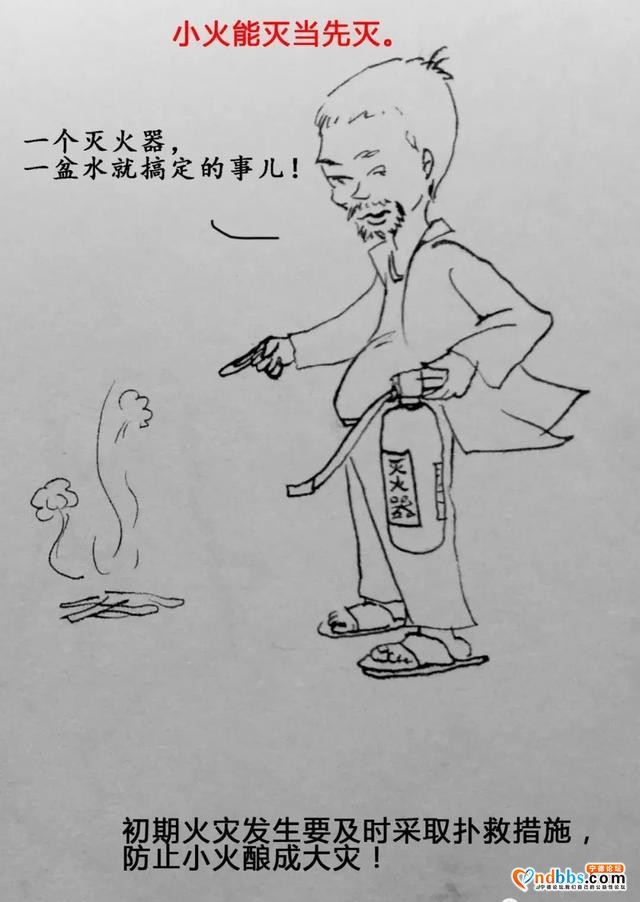 小火能灭当先灭。
一个灭火器，
一盆水就搞定的事儿！
灭火器
初期火灾发生要及时采取扑救措施，
防止小火酿成大灾！
宁德论坛
ndbbs.com
宁德论坛我们自己的公益性论坛